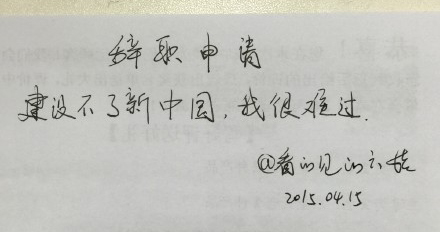 辞职申请
建设不了新中国，我很难过.
@看的见的
2015.04.15